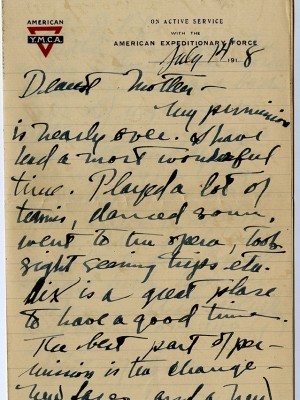 AMERICAN
Y.M.C.A.
ON ACTIVE SERVICE
WITH THE
AMERICAN EXPEDITIONARY FORCE
July 14 1918
Dearest Mother –
My permission
is nearly over. I have
had a most wonderful
time. Played a lot of
tennis, danced some,
went to the opera, took
sight seeing trips etc.
Aix is a great place
to have a good time.
The best part of per-
mission is the change –
new faces and a new